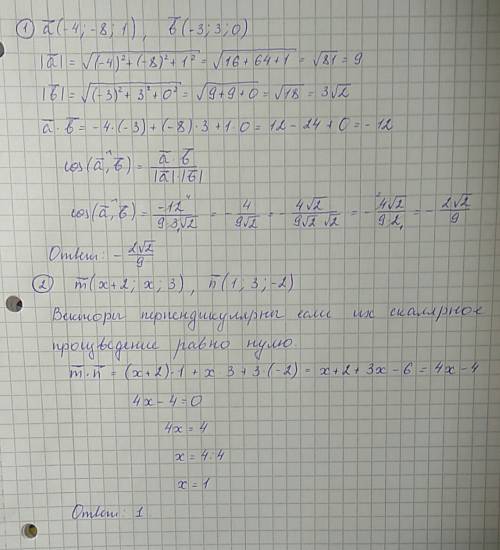 ① a̅(-4; -8; 1), b̅(-3; 3; 0)
|a̅| = √((-4)²+(-8)²+1²) = √(16+64+1) = √81 = 9
|b̅| = √((-3)²+3²+0²) = √(9+9+0) = √18 = 3√2
a̅·b̅ = -4·(-3)+(-8)·3+1·0 = 12-24+0 = -12
cos(a̅,^b̅) = a̅·b̅ / |a̅|·|b̅|
cos(a̅,^b̅) = -12⁴/9·3√2 = -4/9√2 = -4√2/9√2·√2 = -²4√2/9·2₁ = -2√2/9
Ответ: -2√2/9
② m̅(x+2; x; 3), n̅(1; 3; -2)
Векторы перпендикулярны если их скалярное
произведение равно нулю.
m̅·n̅ = (x+2)·1+x·3+3·(-2) = x+2+3x-6 = 4x-4
4x-4=0
4x=4
x=4:4
x=1
Ответ: 1